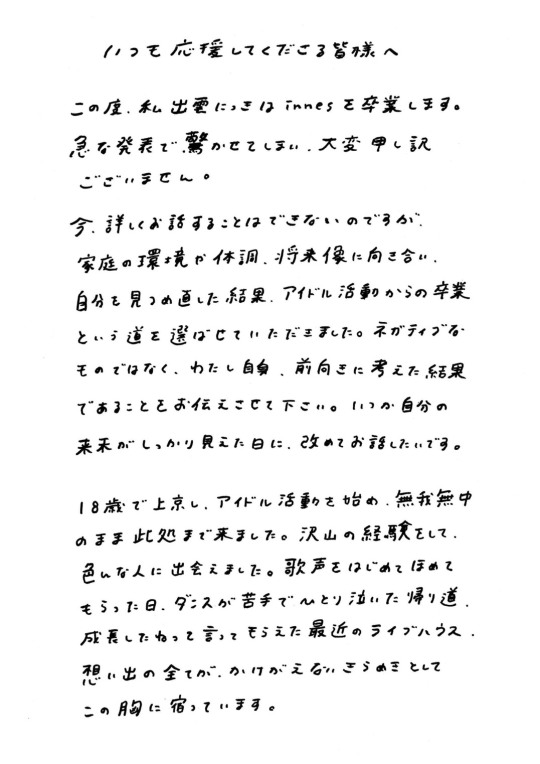 いつも応援してくださる皆様へ
この度、私出雲にっきはinnesを卒業します。
急な発表で驚かせてしまい、大変申し訳
ございません。
今、詳しくお話することはできないのですが、
家庭の環境や体調、将来像に向き合い、
自分を見つめ直した結果、アイドル活動からの卒業
という道を選ばせていただきました。ネガティブな
ものではなく、わたし自身、前向きに考えた結果
であることをお伝えさせて下さい。いつか自分の
未来がしっかり見えた日に、改めてお話したいです。
18歳で上京し、アイドル活動を始め、無我無中
のまま此処まで来ました。沢山の経験をして、
色んな人に出会えました。歌声をはじめてほめて
もらった日、ダンスが苦手でひとり泣いた帰り道、
成長したねって言ってもらえた最近のライブハウス、
想い出の全てが、かけがえないきらめきとして
この胸に宿っています。